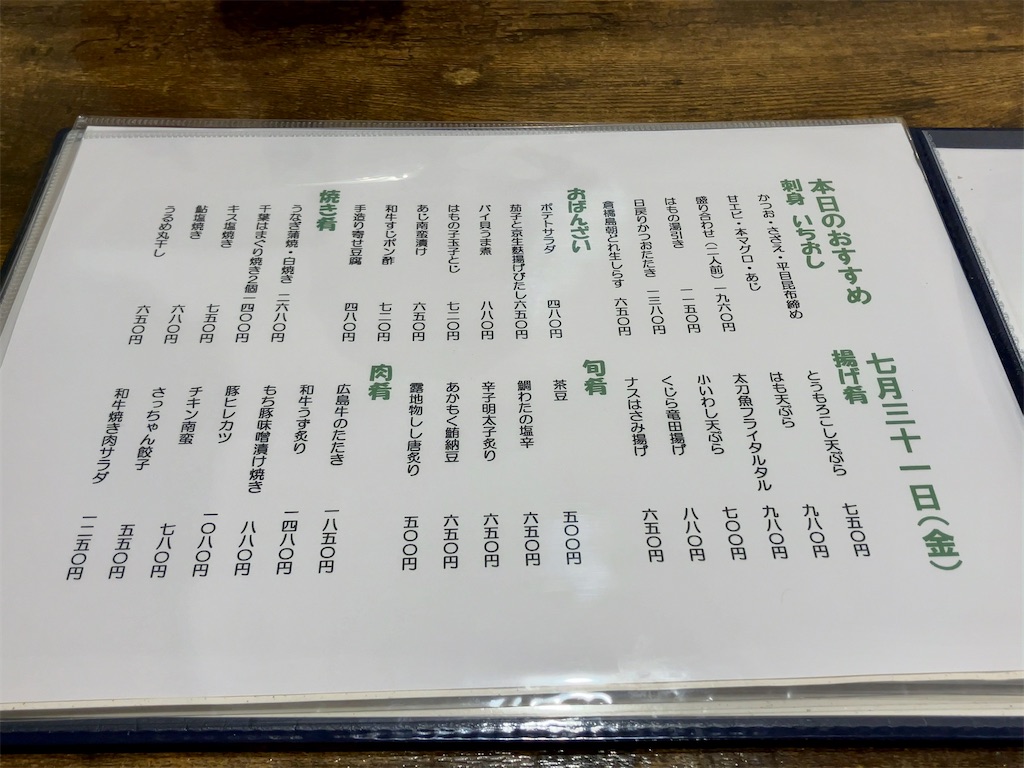 本日のおすすめ　七月三十一日（金）
刺身　いちおし
かつお・さざえ・平目昆布締め
甘エビ・本マグロ・あじ
盛り合わせ（二人前）一九六〇円
はもの湯引き　一一五〇円
日戻りかつおたたき　一三八〇円
倉橋島朝どれ生しらす　六五〇円
おばんざい
ポテトサラダ　四八〇円
茄子と京生麩揚げびたし六五〇円
バイ貝うま煮　八八〇円
はもの子玉子とじ　七二〇円
あじ南蛮漬け　六五〇円
和牛すじポン酢　七二〇円
手造り寄せ豆腐　四八〇円
焼き肴
うなぎ蒲焼・白焼き　二六八〇円
千葉はまぐり焼き２個一四〇〇円
キス塩焼き　七五〇円
鮎塩焼き　六八〇円
うるめ丸干し　六五〇円
揚げ肴
とうもろこし天ぷら　七五〇円
はも天ぷら　九八〇円
太刀魚フライタルタル　九八〇円
小いわし天ぷら　七〇〇円
くじら竜田揚げ　八八〇円
ナスはさみ揚げ　六五〇円
旬肴
茶豆　五〇〇円
鯛わたの塩辛　六五〇円
辛子明太子炙り　六五〇円
あかもく鮪納豆　六五〇円
露地物しし唐炙り　五〇〇円
肉肴
広島牛のたたき　一八五〇円
和牛うず炙り　一四八〇円
もち豚味噌漬け焼き　八八〇円
豚ヒレカツ　一〇八〇円
チキン南蛮　七八〇円
さっちゃん餃子　五五〇円
和牛焼き肉サラダ　一二五〇円